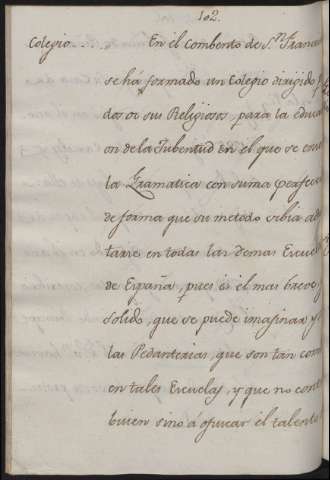 102.
Colegio. En el combento de S.n Franci
se há formado un Colegio dirigido p
dos de sus Religiosos, para la educa
on de la Jubentud en el que se ense
la Gramatica con suma perfecci
de forma que su metodo debia ad
tarse en todas las demas Escuel
de España, pues és el mas breve y
solido, que se puede imaginar y
las Pedanterias, que son tan com
en tales Escuelas, y que no cont
buien sinó á ofuscar el talento